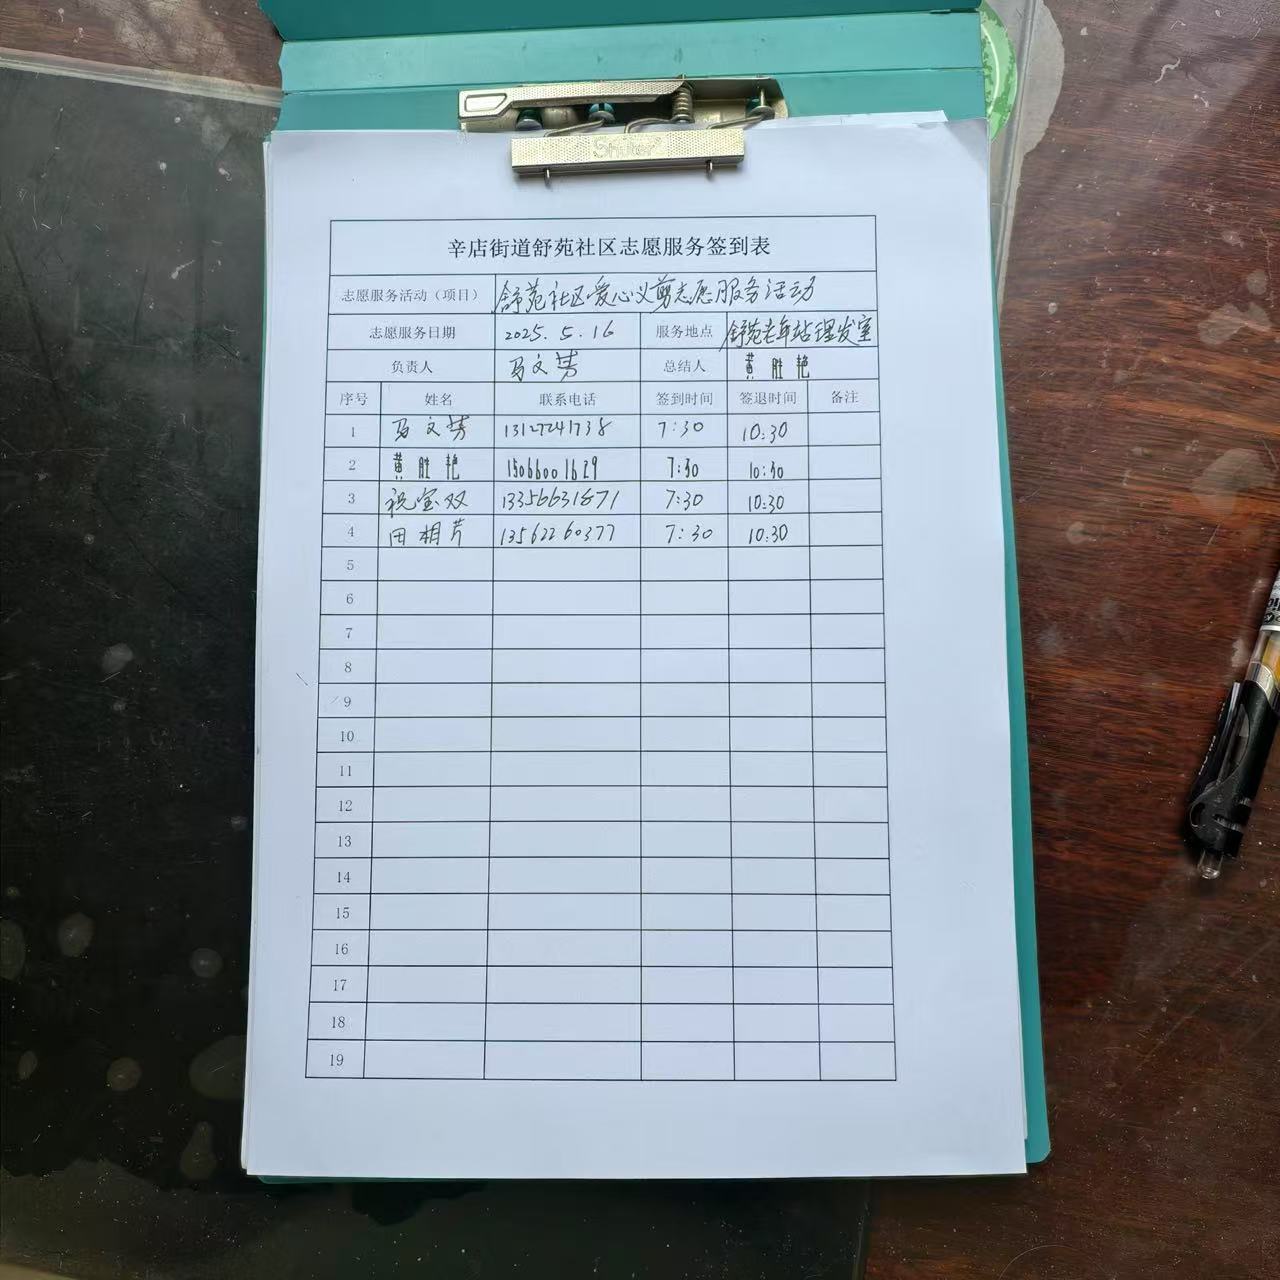 Shuter
辛店街道舒苑社区志愿服务签到表
志愿服务活动（项目） 舒苑社区爱心义剪志愿服务活动
志愿服务日期 2025.5.16 服务地点 舒苑老年站理发室
负责人 马文芳 总结人 黄胜艳
序号 姓名 联系电话 签到时间 签退时间 备注
1 马文芳 13127241738 7:30 10:30
2 黄胜艳 15066001629 7:30 10:30
3 祝宝双 13356631871 7:30 10:30
4 田相芹 13562260377 7:30 10:30
5
6
7
8
9
10
11
12
13
14
15
16
17
18
19